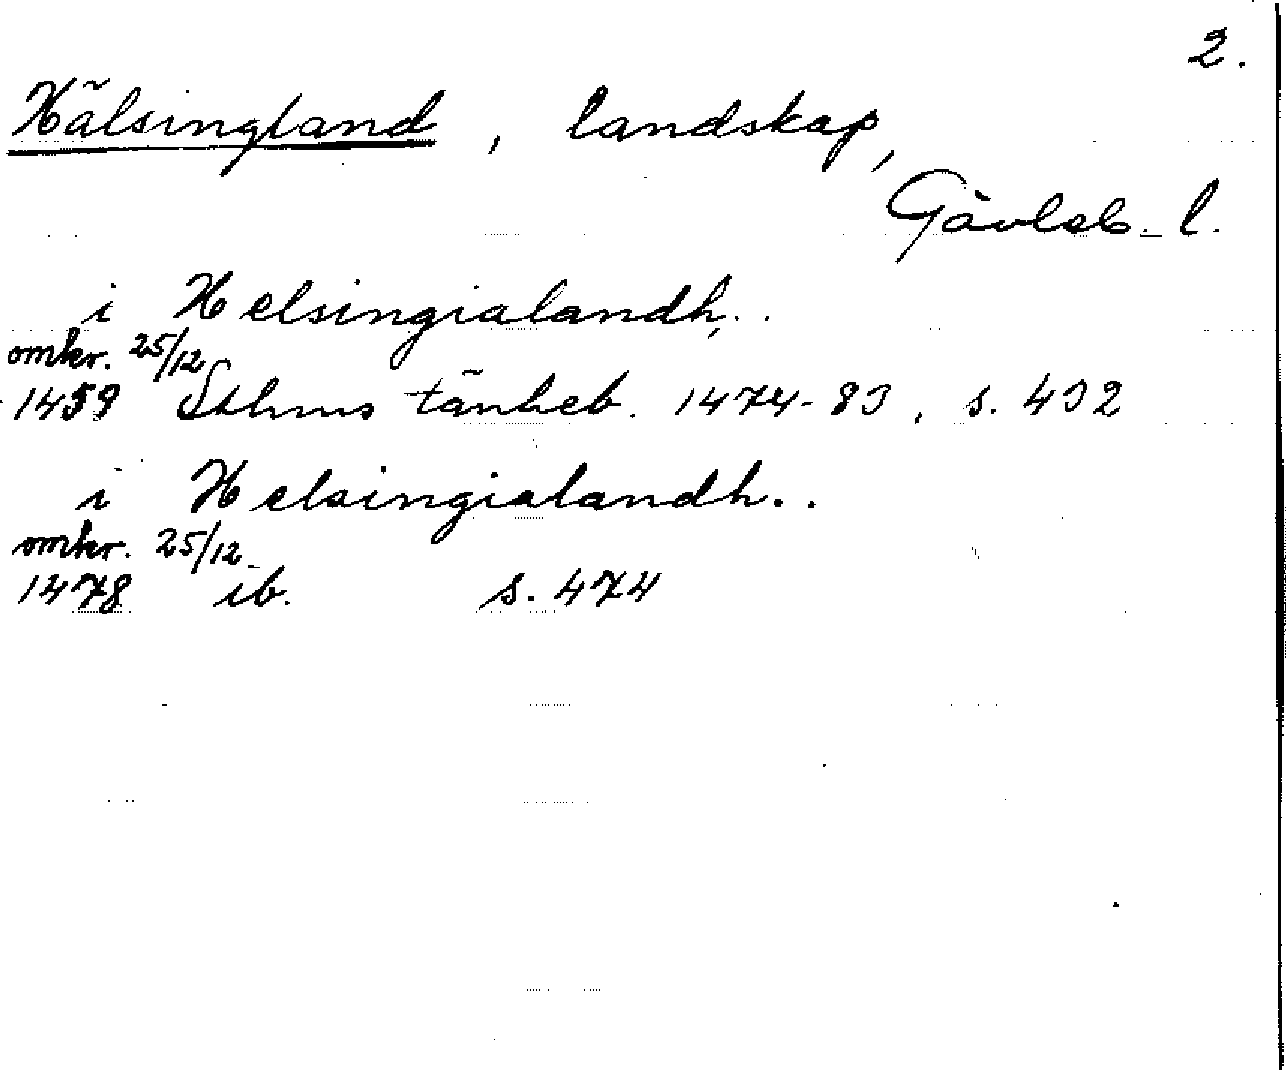 2.
Hälsingland, landskap,
Gävleb. l.
i Helsingialandh..
omkr. 25/12
1459 Sthms tänkeb. 1474-83, s. 432
i Helsingialandh..
omkr. 25/12
1478 ib. s. 474